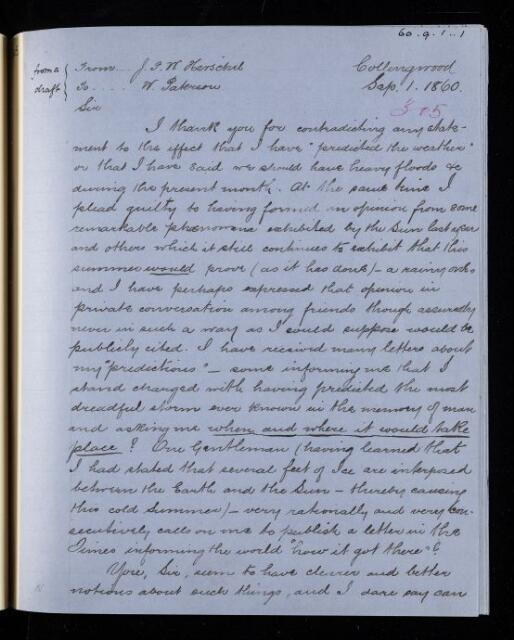 60.9.1..1
from a draft { From... J F W Herschel
To..... W. Paterson
Collingwood
Sep. 1. 1860.
305
Sir
I thank you for contradicting any state-
ment to the effect that I have "predicted the weather"
or that I have said we should have heavy floods &c
during the present month. At the same time I
plead guilty to having formed an opinion from some
remarkable phænomena exhibited by the Sun last year
and others which it still continues to exhibit that this
summer would prove (as it has done) - a rainy one
and I have perhaps expressed that opinion in
private conversation among friends though assuredly
never in such a way as I could suppose would be
publicly cited. I have received many letters about
my "predictions" - some informing me that I
stand charged with having predicted the most
dreadful storm ever known in the memory of man
and asking me when and where it would take
place? One Gentleman (having learned that
I had stated that several feet of Ice are interposed
between the Earth and the Sun - thereby causing
this cold Summer) - very rationally and very con-
secutively calls on me to publish a letter in the
Times informing the world "how it got there"?
You, Sir, seem to have clearer and better
notions about such things, and I dare say can